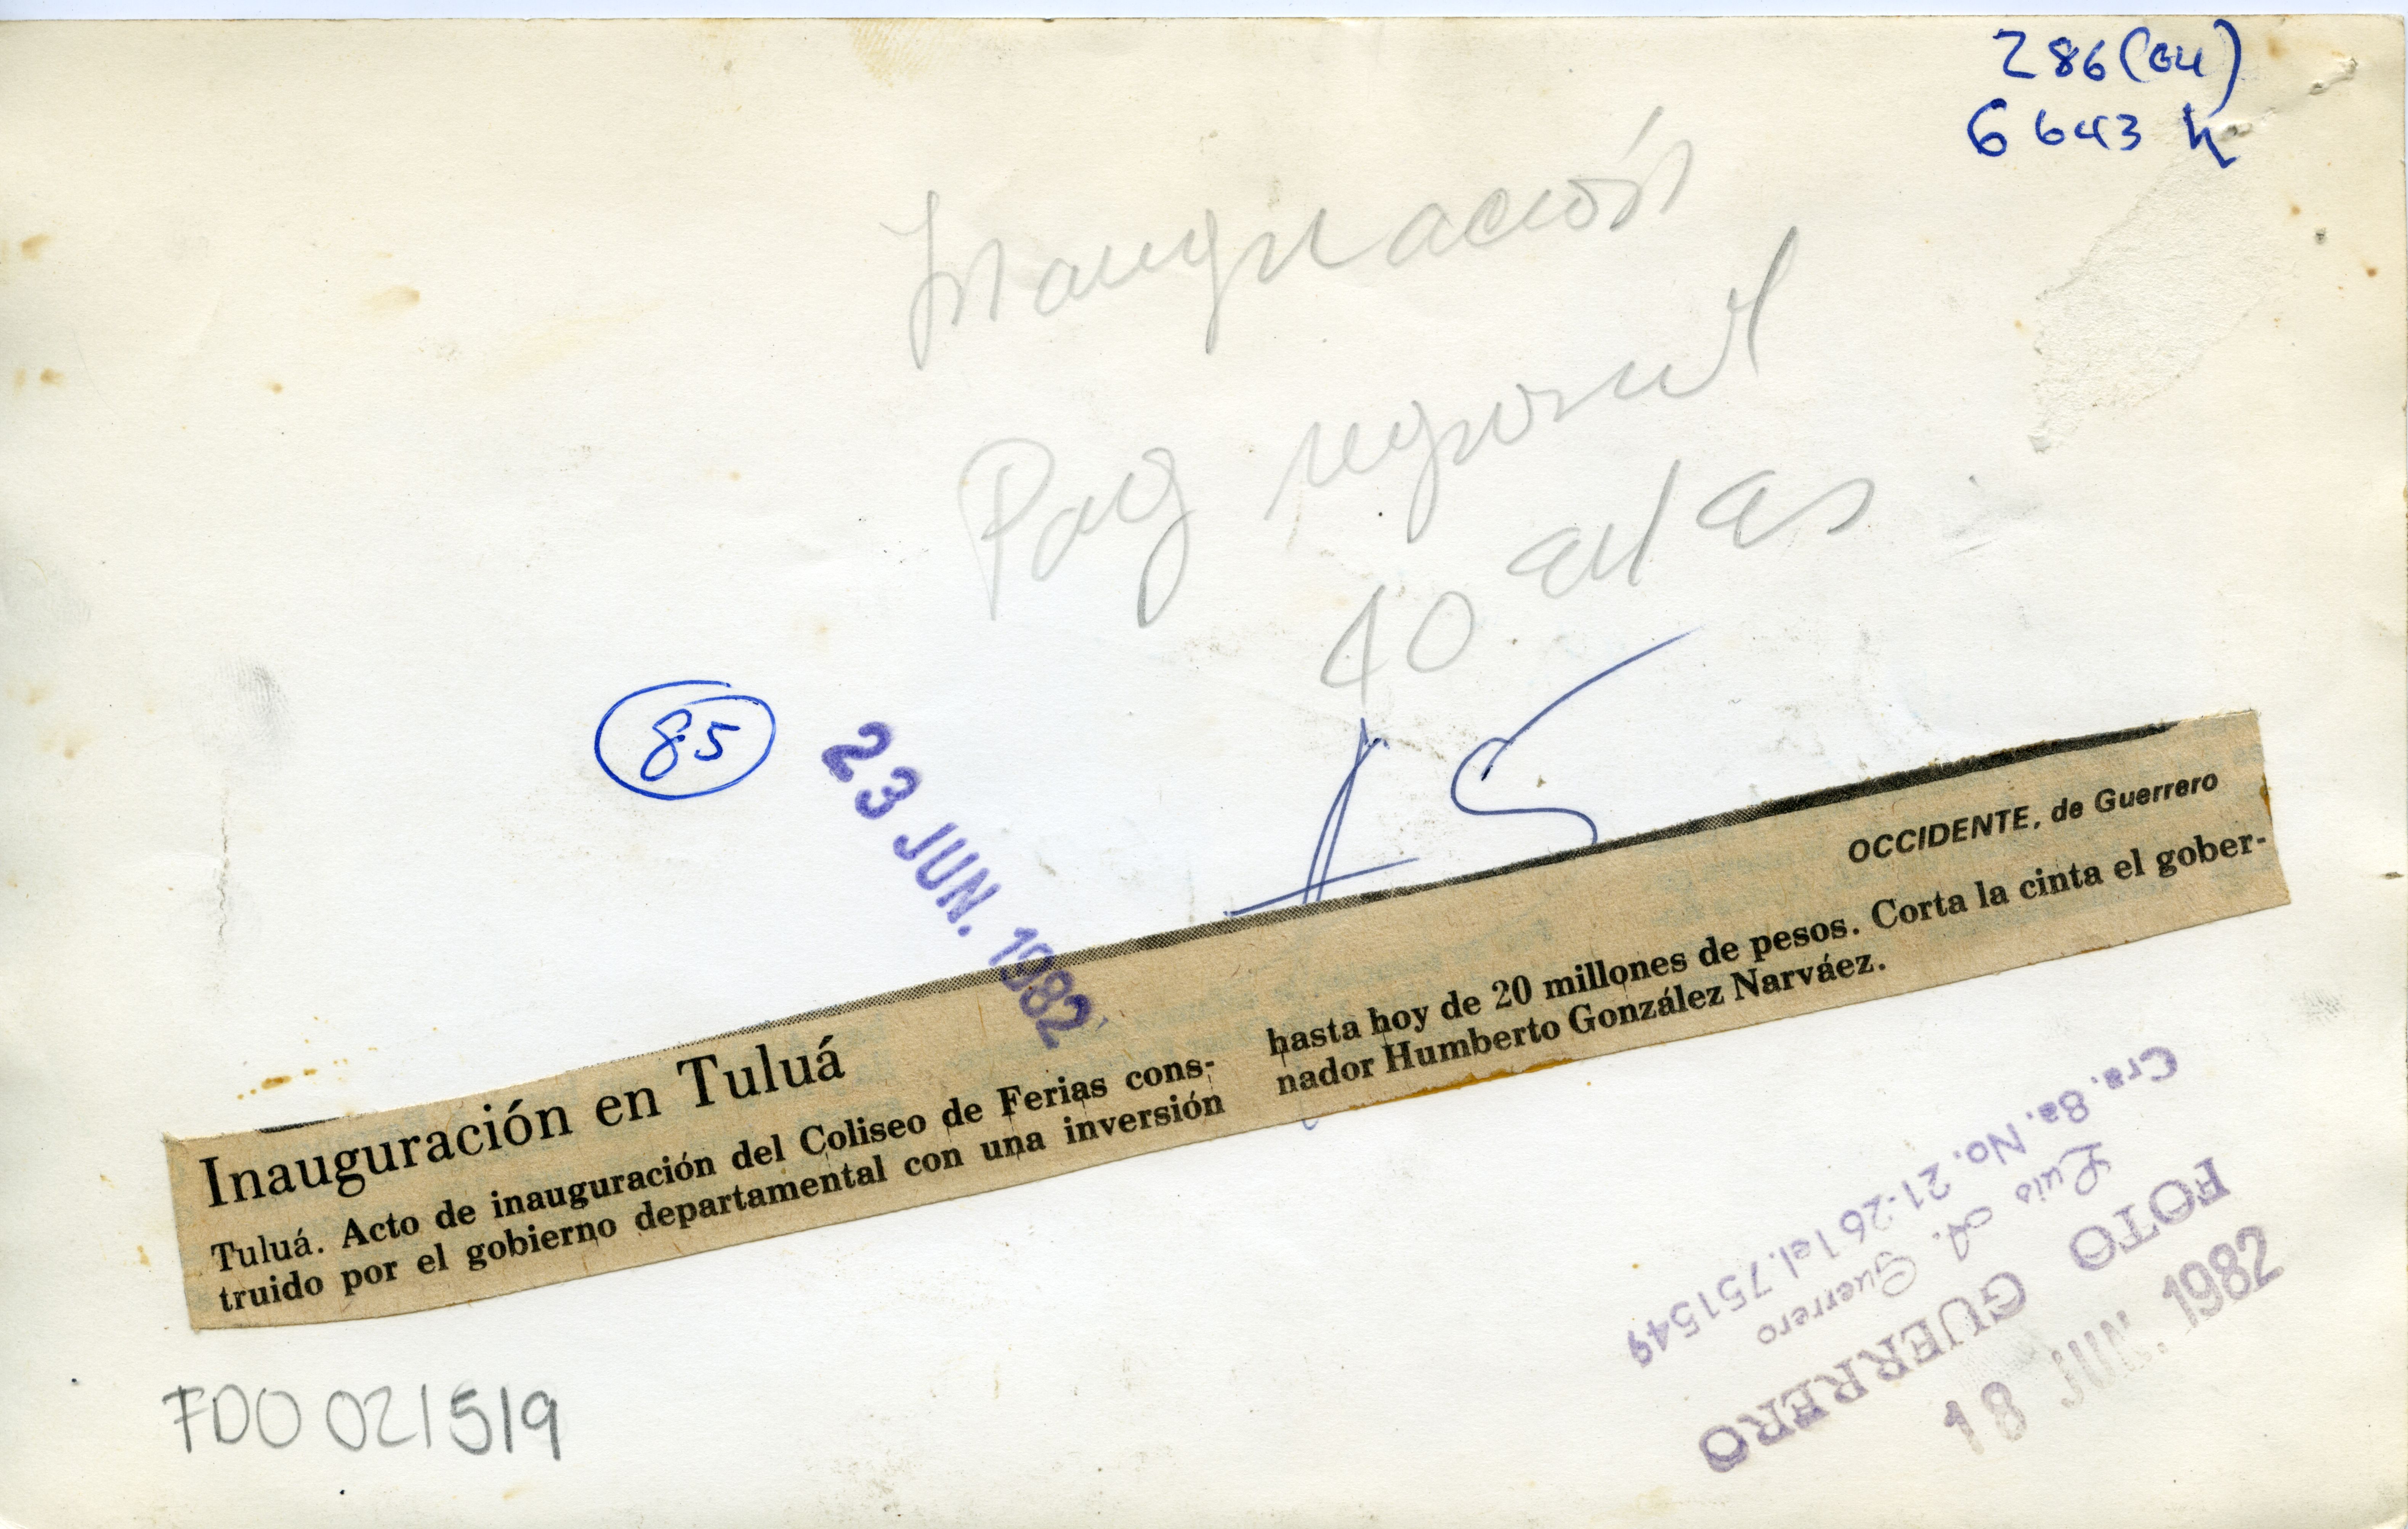 286(04)
6643 h
Inauguración
Pag regional
40
85
23 JUN. 1982
OCCIDENTE, de Guerrero
Inauguración en Tuluá
Tuluá. Acto de inauguración del Coliseo de Ferias cons-
truido por el gobierno departamental con una inversión
hasta hoy de 20 millones de pesos. Corta la cinta el gober-
nador Humberto González Narváez.
FOTO GUERRERO
Luis A. Guerrero
Cra. 8a. No. 21-26 Tel. 751549
18 JUN. 1982
FDO 021519